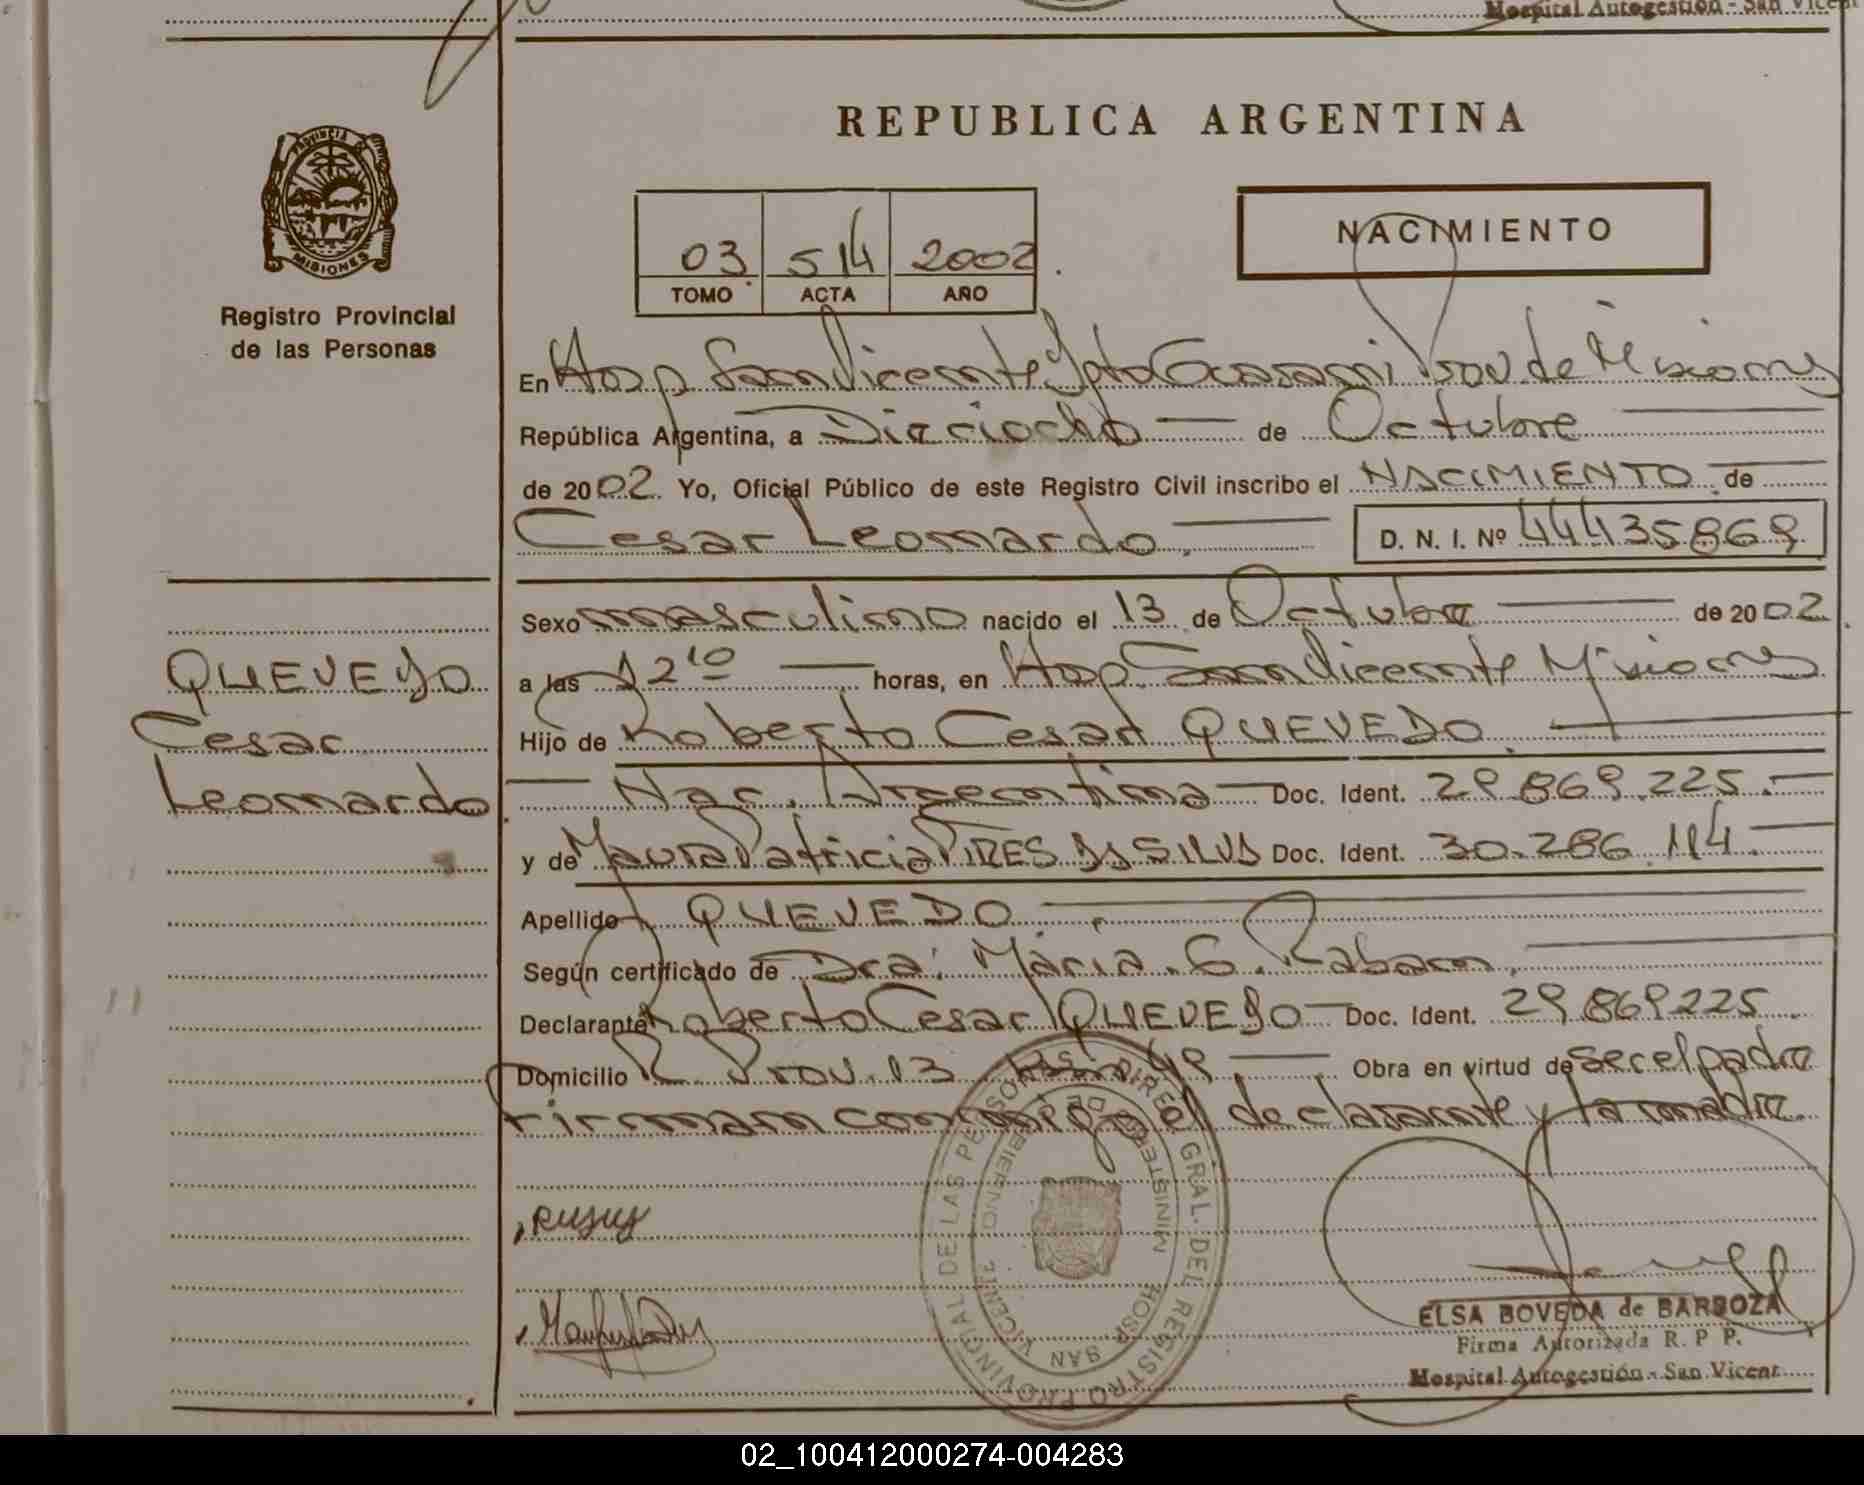 Hospital Autogestión - San Vicent
REPUBLICA ARGENTINA
PROVINCIA DE
MISIONES
Registro Provincial
de las Personas
03 514 2002
TOMO ACTA AÑO
NACIMIENTO
En Hosp San Vicente Dpto Guarani Prov. de Misiones
República Argentina, a Dieciocho de Octubre
de 2002. Yo, Oficial Público de este Registro Civil inscribo el NACIMIENTO de
Cesar Leonardo. D. N. I. Nº 44435869
Sexo masculino nacido el 13 de Octubre de 2002.
QUEVEDO
Cesar
Leonardo.
a las 12 10 horas, en Hosp San Vicente Misiones
Hijo de Roberto Cesar QUEVEDO.
Nac. Argentina Doc. Ident. 29.869.225.
y de Maura Patricia PIRES DA SILVA Doc. Ident. 30.286.114.
Apellido QUEVEDO.
Según certificado de Dra. Maria. G. Rabaen.
Declarante Roberto Cesar QUEVEDO Doc. Ident. 29.869225.
Domicilio R. Prov. 13 Km 49 Obra en virtud de ser el padre
Firman conmigo el declarante y la madre.
DIRE GRAL. DEL REGISTRO PROVINCIAL DE LAS PERSO
MINISTE DE GOBIERNO
HOSP SAN VICENTE
ELSA BOVEDA de BARBOZA
Firma Autorizada R. P. P.
Hospital Autogestión - San Vicent
02_100412000274-004283